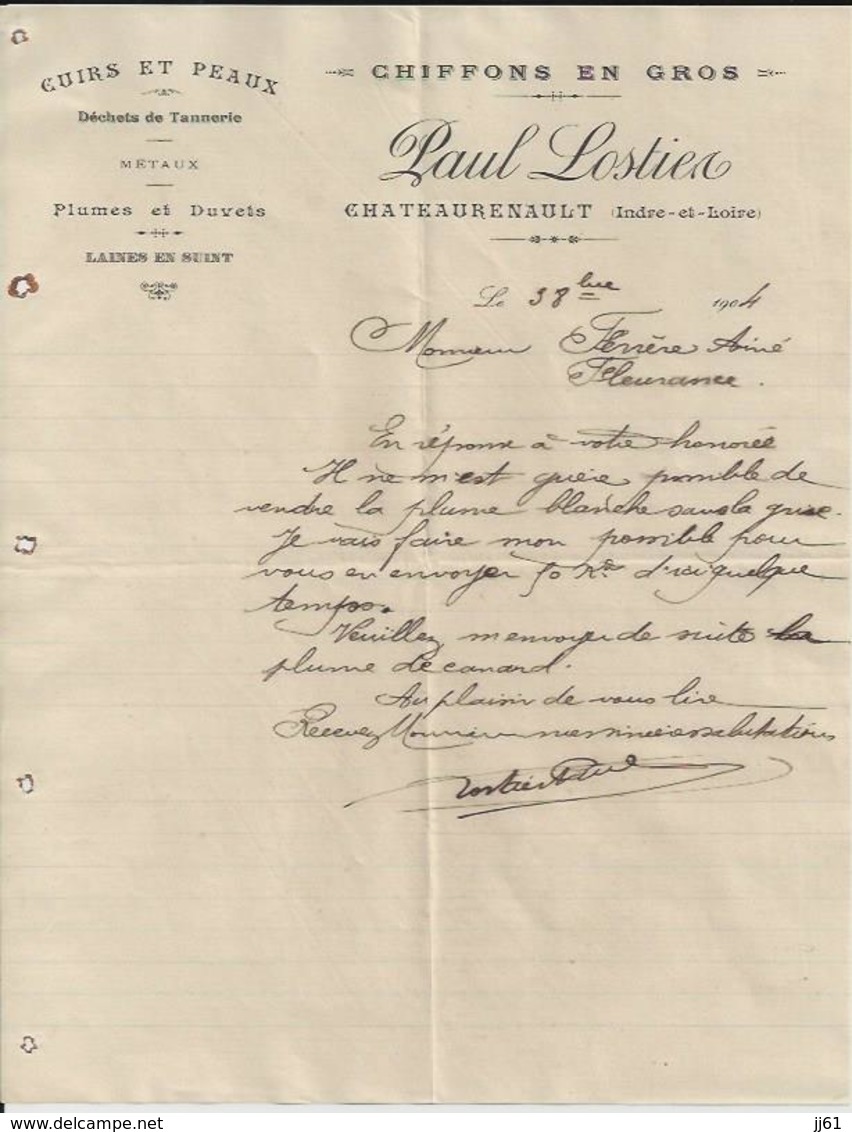 CUIRS ET PEAUX
Déchets de Tannerie
MÉTAUX
Plumes et Duvets
LAINES EN SUINT
CHIFFONS EN GROS
Paul Lostier
CHATEAURENAULT (Indre-et-Loire)
Le 8bre 1904
Monsieur Ferrère Ainé
Fleurance.
En réponse à votre honorée
Il ne m'est guère possible de
vendre la plume blanche sans la grise.
Je vais faire mon possible pour
vous en envoyer 50 Kos d'ici quelque
temps.
Veuillez m'envoyer de suite la
plume de canard.
Au plaisir de vous lire
Recevez Monsieur mes sincères salutations
Lostier Paul
jj61